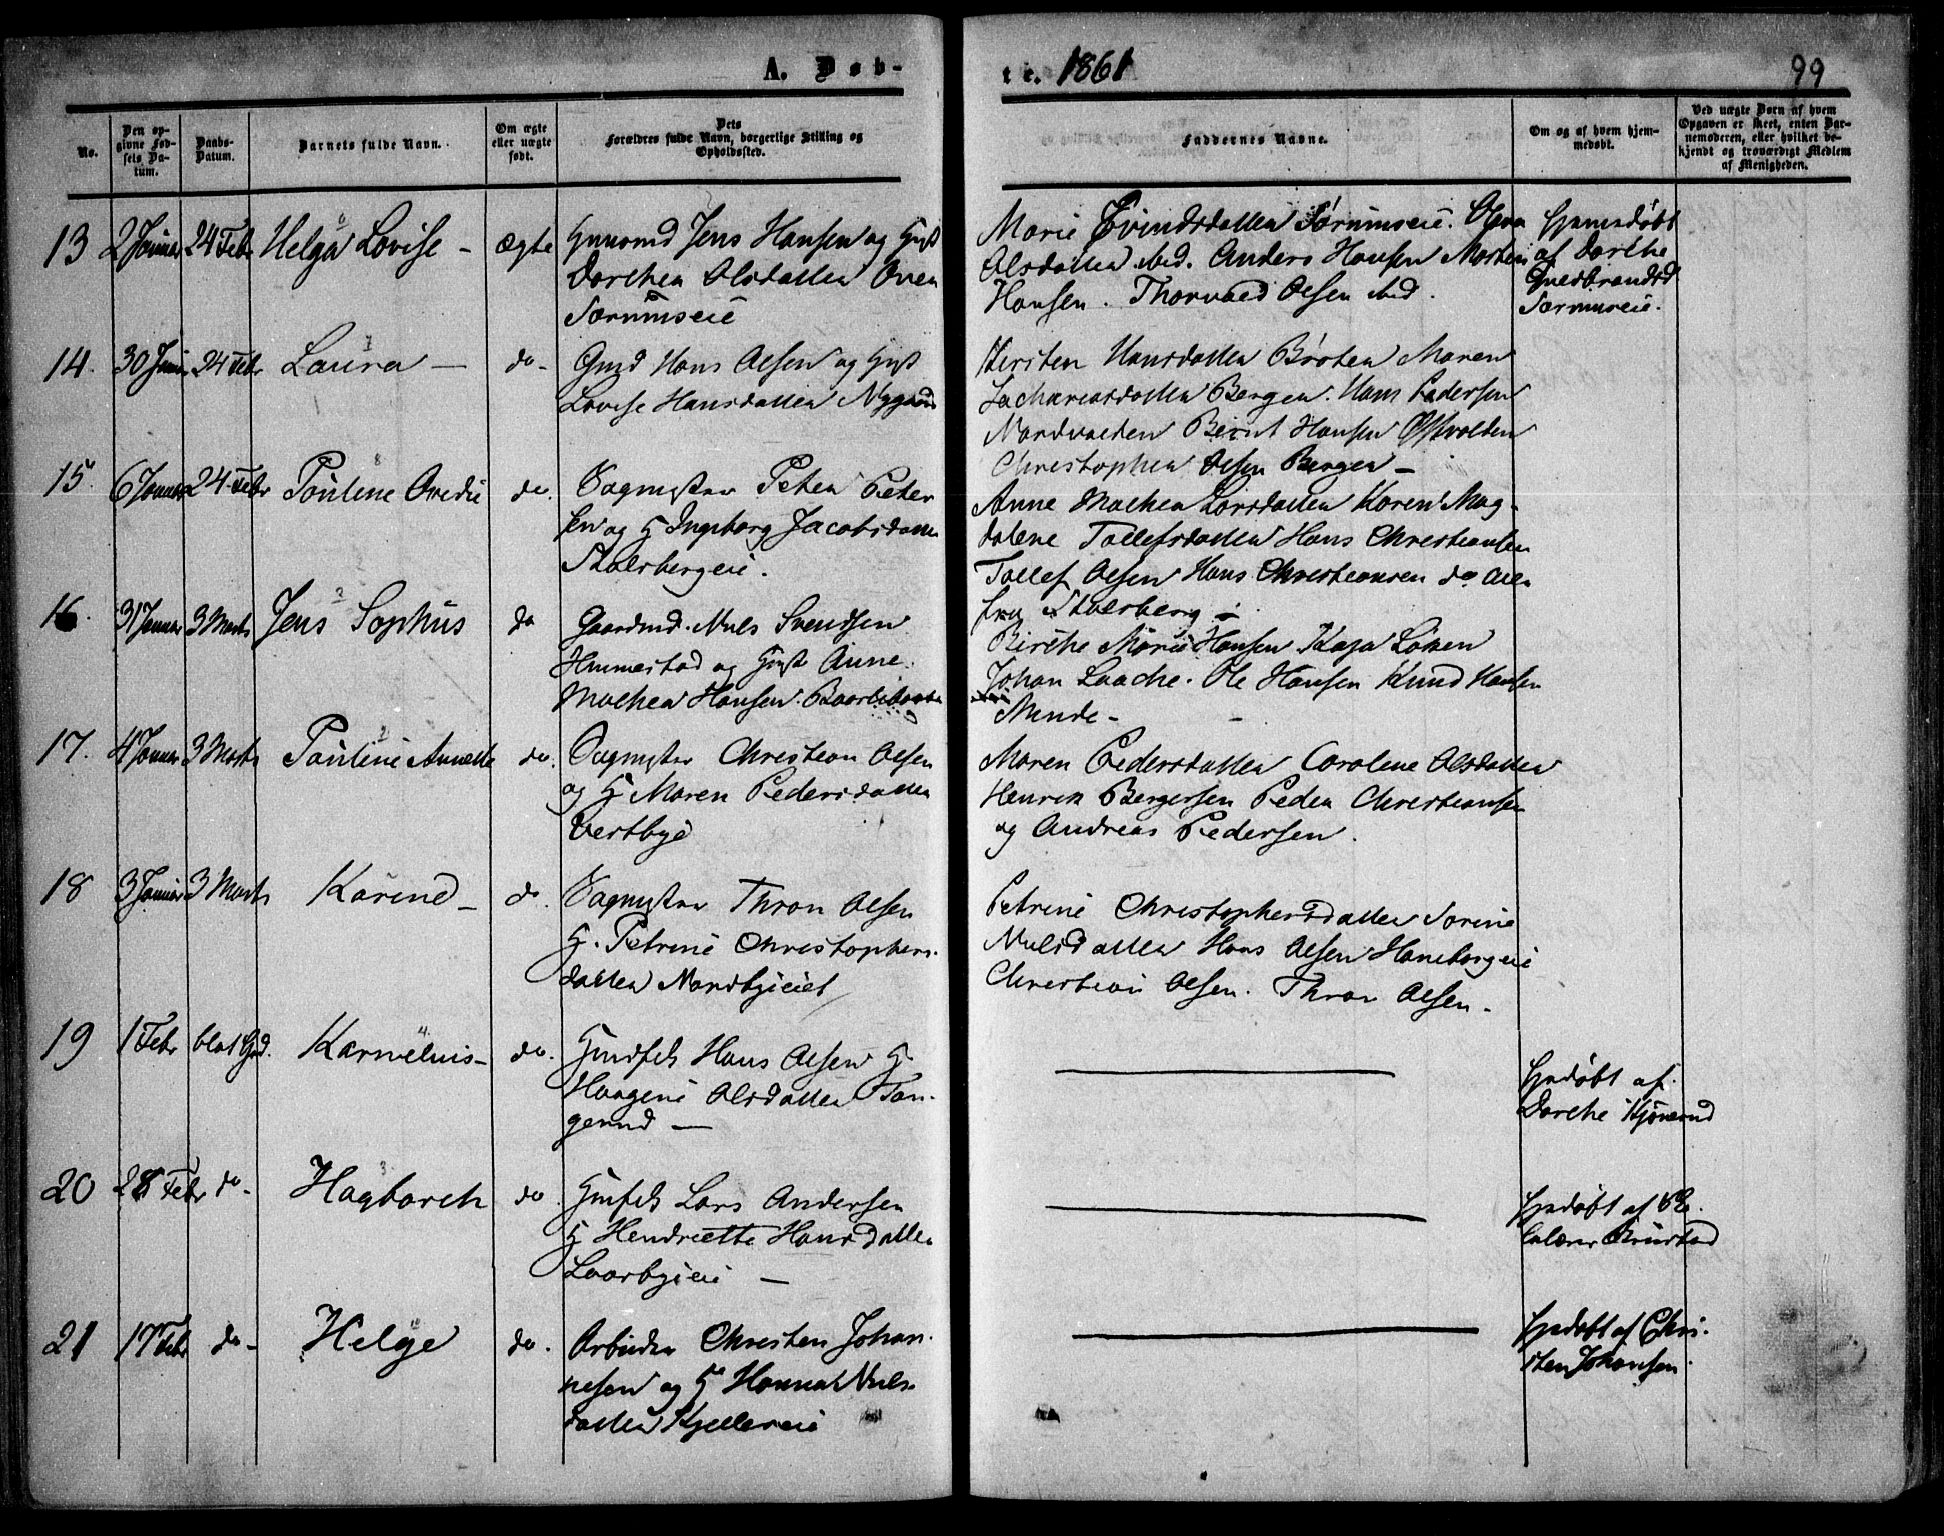 A. Døb-
te. 1861
99
No.
Den op-
givne Fød-
sels Da-
tum.
Daabs-
Datum.
Barnets fulde Navn.
Om ægte
eller uægte
født.
Dets
Forældres fulde Navn, borgerlige Stilling og
Opholdssted.
Faddernes Navne.
Om og af hvem hjem-
medøbt.
Ved uægte Børn af hvem
Opgaven er skeet, enten Bar-
nemoderen, eller hvilket be-
kjendt og troværdigt Medlem
af Menigheden.
13 2 Januar 24 Febr Helga Lovise - ægte
Jens Hansen og
Dorthea Olsdatter
Sørumseie
Marie Evindsdatter Sørumseie. Olea
Olsdatter ibid. Anders Hansen Morten
Hansen. Thorvald Olsen ibid.
Hjemmedøbt
af Dorthe
Sørumseie.
14. 30 24 Febr Laura - do-
Gmd Hans Olsen og Hust
Lovise Hansdatter Nygaard
Kersten Hansdatter Bróten Maren
Zachariasdatter Bergen. Hans Pedersen
Nordvolden Bernt Hansen Østvolden
Christopher Olsen Bergen -
15. 6 Januar 24 Febr Pauline Ovedie do.
Peter Peter
sen og H Ingeborg Jacobsdatter
Stalsbergeie.
Anne Mathea Larsdatter Karen Mag-
dalene Tollefsdatter Hans Christiansen
Tollef Olsen Hans Christiansen do alle
fra Stalsberg -
16. 31 Januar 3 Marts Jens Sophus do
Gaardmd. Niels Svendsen
Himmestad og Hust Anne
Mathea Hansen
Birthe Marie Hansen Kaja Løken
Johan Laache. Ole Hansen Knud Hansen
Minde -
17. 4 Januar 3 Marts Pauline Annette do.
Christian Olsen
og H Maren Pedersdatter
Vestbye
Maren Pedersdatter Caroline Olsdatter
Henrik Bergersen Peder Christiansen
og Andreas Pedersen.
18 3 Januar 3 Marts Karine - do.
Thron Olsen
H. Petrine Christophers-
datter Nordbyeiet
Petrine Christophersdatter Sørine
Nielsdatter Hans Olsen Haneborgeie
Christian Olsen. Thron Olsen.
19 1 Febr blot Gd. Karnelius - do.
Hans Olsen H
Haagine Olsdatter Tan-
gerud -
Hjdøbt af
Dorthe Kjønerud
20 28 Febr do- Hagbarth do.
Lars Andersen
H Hendriette Hansdatter
Laarbyeie -
Hjdøbt af
21 17 Febr do- Helge do.
Arbeider Christen Johan-
nesen og H Hanna Niels-
datter Kjellereie
Hjdøbt af Chri-
sten Johansen.